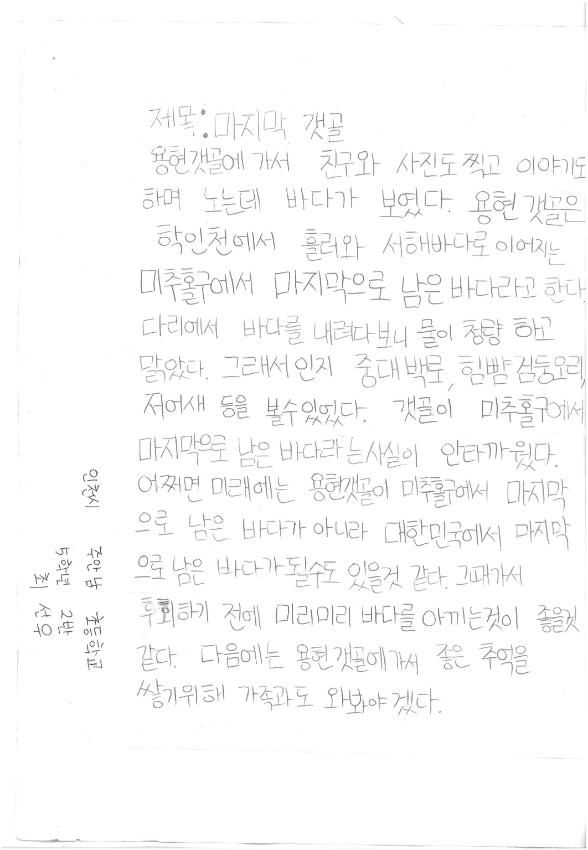 제목: 마지막 갯골
용현갯골에 가서 친구와 사진도 찍고 이야기도
하며 노는데 바다가 보였다. 용현 갯골은
학인천에서 흘러와 서해바다로 이어지는
미추홀구에서 마지막으로 남은 바다라고 한다.
다리에서 바다를 내려다보니 물이 청량 하고
맑았다. 그래서인지 중대백로, 흰뺨검둥오리,
저어새 등을 볼수있었다. 갯골이 미추홀구에서
마지막으로 남은 바다라는사실이 안타까웠다.
어쩌면 미래에는 용현갯골이 미추홀구에서 마지막
으로 남은 바다가 아니라 대한민국에서 마지막
으로 남은 바다가 될수도 있을것 같다. 그때가서
후회하기 전에 미리미리 바다를 아끼는것이 좋을것
같다. 다음에는 용현갯골에가서 좋은 추억을
쌓기위해 가족과도 와봐야겠다.
인천시 주안남 초등학교
5학년 2반
최 선우